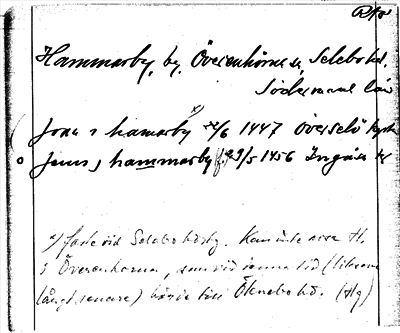 RAp
Hammarby, by, Överenhörna sn, Selebo hd.
Södermanl. län
Jon i hamarby x) 1447 Överselö
Jenis i hammarby 29/5 1456
x) faste vid Selebo hdsby. Kan inte avse H.
i Överenhörna, som vid denna tid (liksom
långt senare) hörde till Öknebo hd. (Hg)